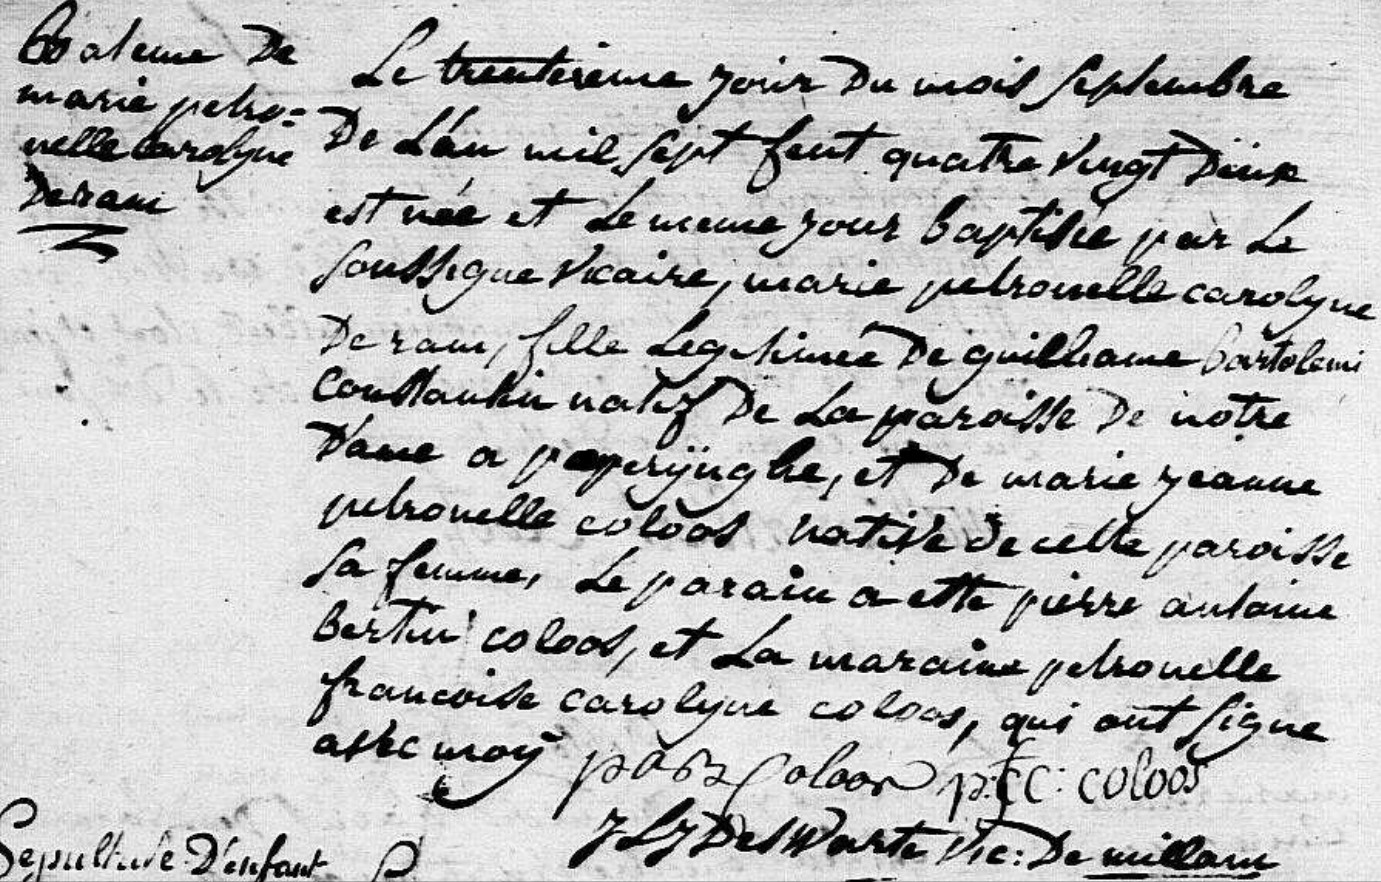 Bateme De
marie petro=
nelle carolyne
Deram
Le trentieme jour Du mois septembre
De L'an mil sept sent quatre vingt Deux
est née et Le meme jour baptisée par Le
soussigne vicaire, marie petronelle carolyne
Deram, fille Legitimée De guilliaume bartolemi
Constantin natif De La paroisse De notre
Dame a poperijnghe, et De marie jeanne
petronelle coloos native de cette paroisse
sa femme, Le parain a ette pierre antoine
bertin coloos, et La maraine petronelle
francoise carolyne coloos, qui ont signe
avec moy
Coloos p:f:C: coloos
DesWarte Vic: De millam
Sepulture D'enfant